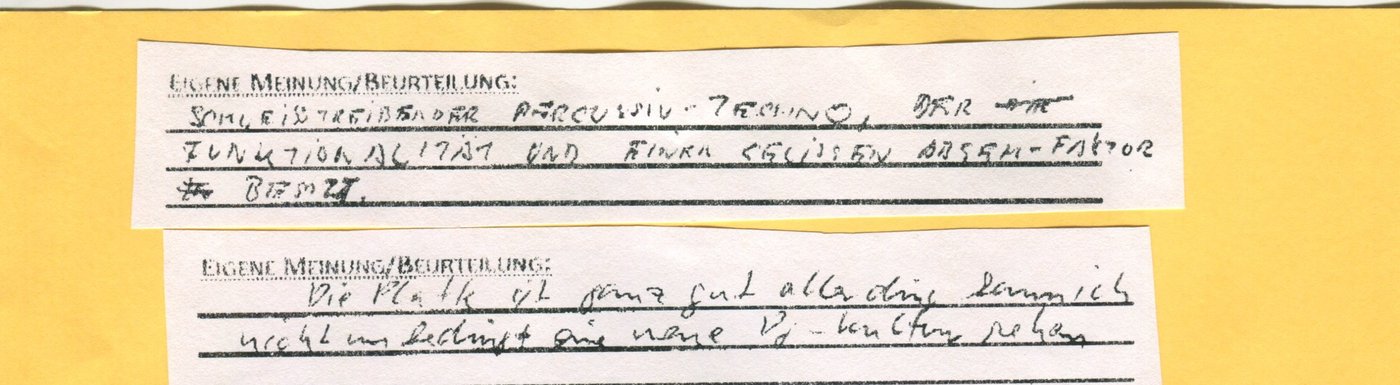 EIGENE MEINUNG/BEURTEILUNG:
SCHWEIßTREIBENDER PERCUSSIV-TECHNO, DER
FUNKTIONALITÄT UND EINEN GEWISSEN ABGEH-FAKTOR
BESITZT.
EIGENE MEINUNG/BEURTEILUNG:
Die Platte ist ganz gut allerdings kann ich
nicht unbedingt eine neue DJ-Kultur sehen